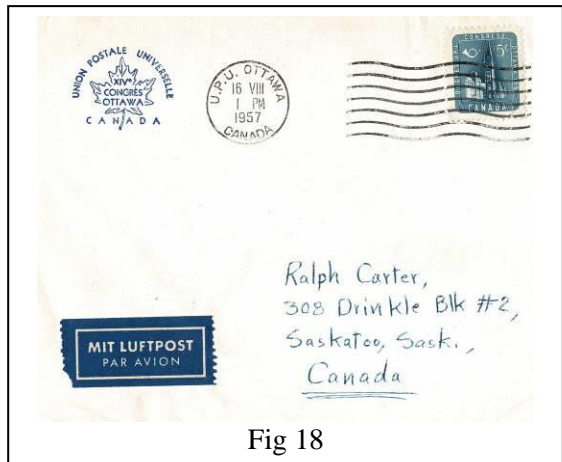 UNION POSTALE UNIVERSELLE
XIVe
CONGRÈS
OTTAWA
CANADA
U.P.U. OTTAWA
16 VIII
1 PM
1957
CANADA
CONGRESS
5c
CANADA
Ralph Carter,
308 Drinkle Blk #2,
Saskatoo, Sask.,
Canada
MIT LUFTPOST
PAR AVION
Fig 18